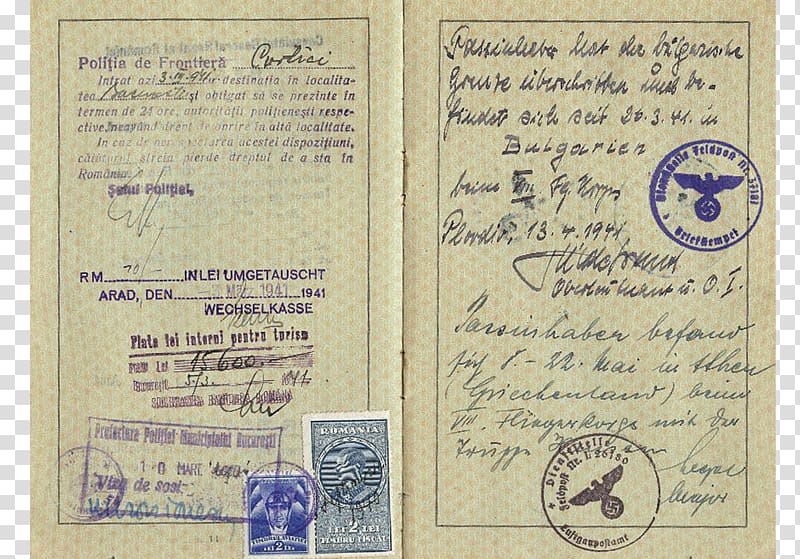 Poliția de Frontieră Curtici
Intrat azi 3.III.941 cu destinația în localita-
tea București, obligat să se prezinte în
termen de 24 ore, autorității polițienești respec-
tive, neavând drept de oprire în altă localitate.
In caz de nerespectarea acestei dispozițiuni,
călătorul strein pierde dreptul de a sta în
România.
Șeful Poliției,
RM 70/- IN LEI UMGETAUSCHT
ARAD, DEN 3 MRZ 1941 1941
WECHSELKASSE
Plata lei interni pentru turism
Suma Lei 15600
București 5/3 1941
Prefectura Poliției Municipiului București
10 MART. 1941
Viza de sosire
ROMANIA
2 LEI 2
TIMBRUL AVIAȚIEI
LEI 2 LEI
TIMBRU FISCAL
11
Passinhaber hat die bulgarische
Grenze überschritten und be-
findet sich seit 26.3.41. in
Bulgarien
beim VIII Flg Korps
Plovdiv, 13.4.1941
Oberleutnant u. O.I.
Dienststelle Feldpost Nr.
Briefstempel
Passinhaber befand
sich 8.-22. Mai in Athen
(Griechenland) beim
VIII. Fliegerkorps mit der
Truppe
Major
Dienststelle
Feldpost Nr. L 26180
Luftgaupostamt